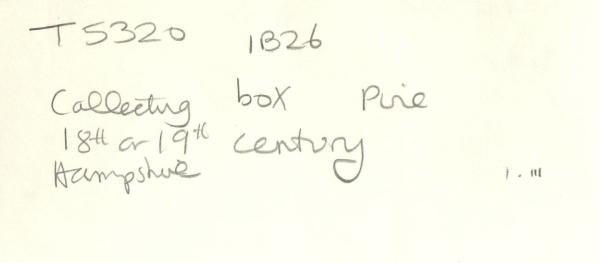 T5320 1B26
Collecting box Pine
18th or 19th century
Hampshire